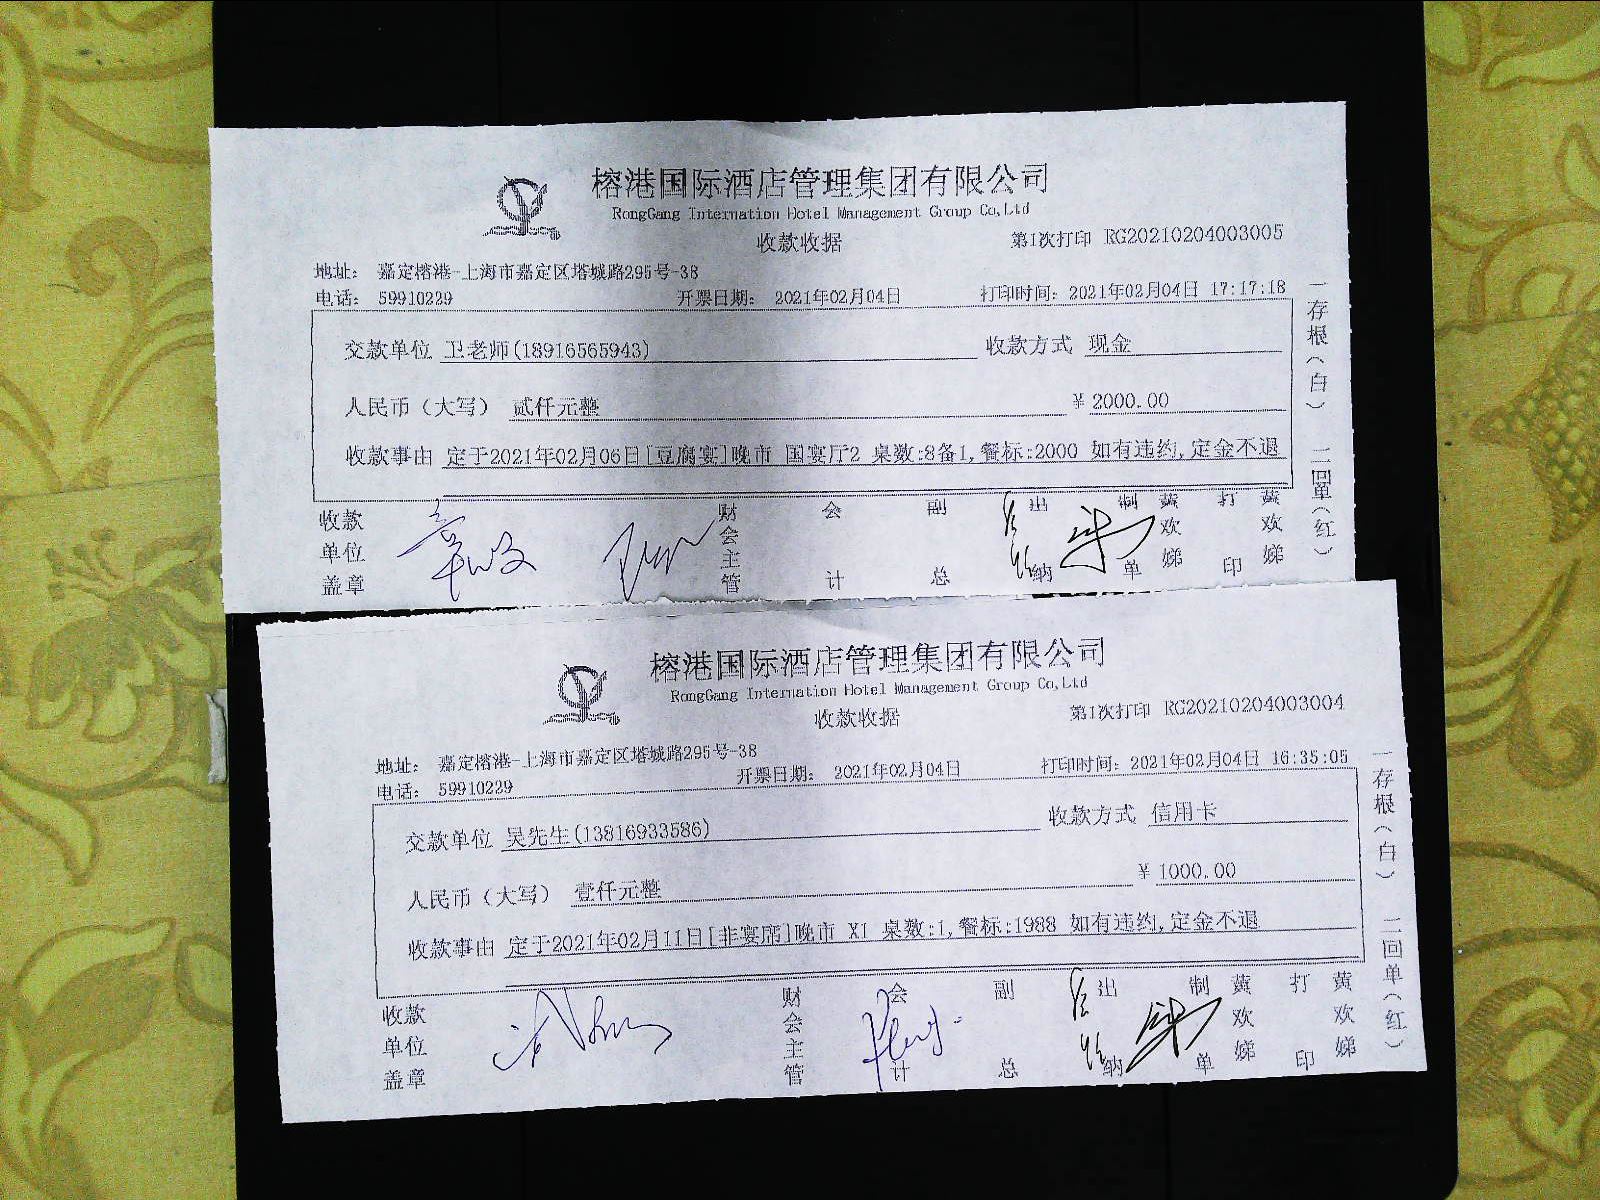 榕港国际酒店管理集团有限公司
RongGang Internation Hotel Management Group Co,Ltd
收款收据
第1次打印 RG20210204003005
地址： 嘉定榕港-上海市嘉定区塔城路295号-38
电话： 59910229 开票日期： 2021年02月04日 打印时间：2021年02月04日 17:17:18
交款单位 卫老师(18916565943) 收款方式 现金
人民币（大写） 贰仟元整 ¥ 2000.00
收款事由 定于2021年02月06日[豆腐宴]晚市 国宴厅2 桌数:8备1,餐标:2000 如有违约,定金不退
收款单位盖章 财会主管 会计 副总 出纳 制单 黄欢娣 打印 黄欢娣
一存根（白） 二回单（红）
榕港国际酒店管理集团有限公司
RongGang Internation Hotel Management Group Co,Ltd
收款收据
第1次打印 RG20210204003004
地址： 嘉定榕港-上海市嘉定区塔城路295号-38
电话： 59910229 开票日期： 2021年02月04日 打印时间：2021年02月04日 16:35:05
交款单位 吴先生(13816933586) 收款方式 信用卡
人民币（大写） 壹仟元整 ¥ 1000.00
收款事由 定于2021年02月11日[非宴席]晚市 XI 桌数:1,餐标:1988 如有违约,定金不退
收款单位盖章 财会主管 会计 副总 出纳 制单 黄欢娣 打印 黄欢娣
一存根（白） 二回单（红）